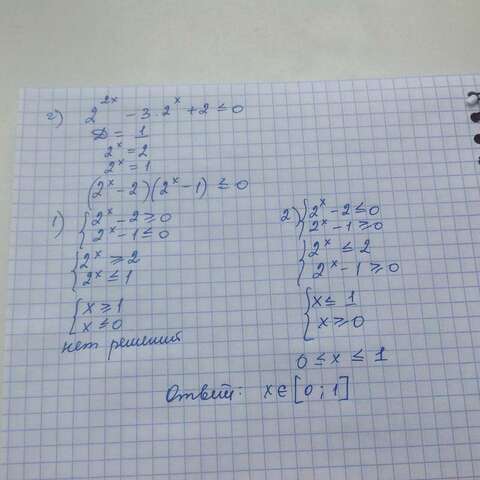 г) 2^{2x} - 3·2^x + 2 ≤ 0
D = 1
2^x = 2
2^x = 1
(2^x - 2)(2^x - 1) ≤ 0
1) { 2^x - 2 ≥ 0
2^x - 1 ≤ 0
{ 2^x ≥ 2
2^x ≤ 1
{ x ≥ 1
x ≤ 0
нет решений
2) { 2^x - 2 ≤ 0
2^x - 1 ≥ 0
{ 2^x ≤ 2
2^x - 1 ≥ 0
{ x ≤ 1
x ≥ 0
0 ≤ x ≤ 1
Ответ: x ∈ [0 ; 1]